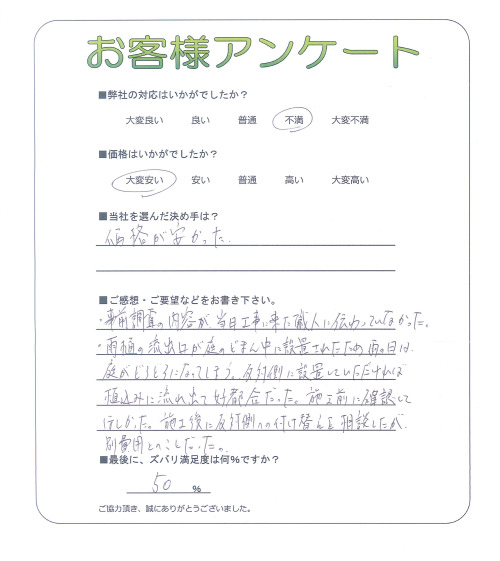 お客様アンケート
■弊社の対応はいかがでしたか？
大変良い 良い 普通 不満 大変不満
■価格はいかがでしたか？
大変安い 安い 普通 高い 大変高い
■当社を選んだ決め手は？
価格が安かった。
■ご感想・ご要望などをお書き下さい。
・事前調査の内容が、当日工事に来た職人に伝わっていなかった。
・雨樋の流出口が庭のどまん中に設置されたため雨の日は、
庭がどろどろになってしまう。反対側に設置していただければ
植込みに流れ出て好都合だった。施工前に確認して
ほしかった。施工後に反対側への付け替えを相談したが、
別費用とのことだった。
■最後に、ズバリ満足度は何%ですか？
50 %
ご協力頂き、誠にありがとうございました。